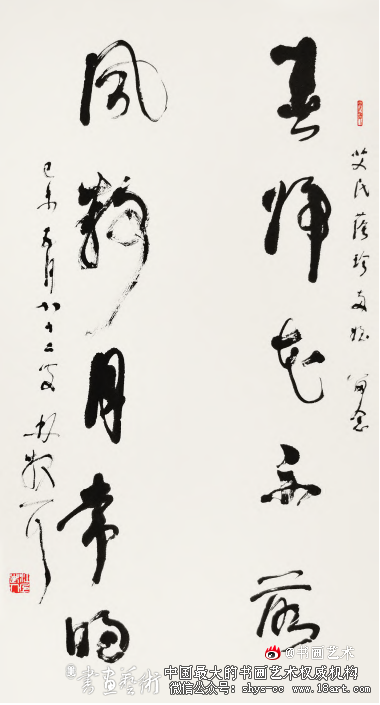 艾民蔭珍留念
春歸花不落
風靜月常明
己未五月八十二叟林散耳
@书画艺术
書画藝術
中国最大的书画艺术权威机构
微信公众号：shys-cc www.18art.com